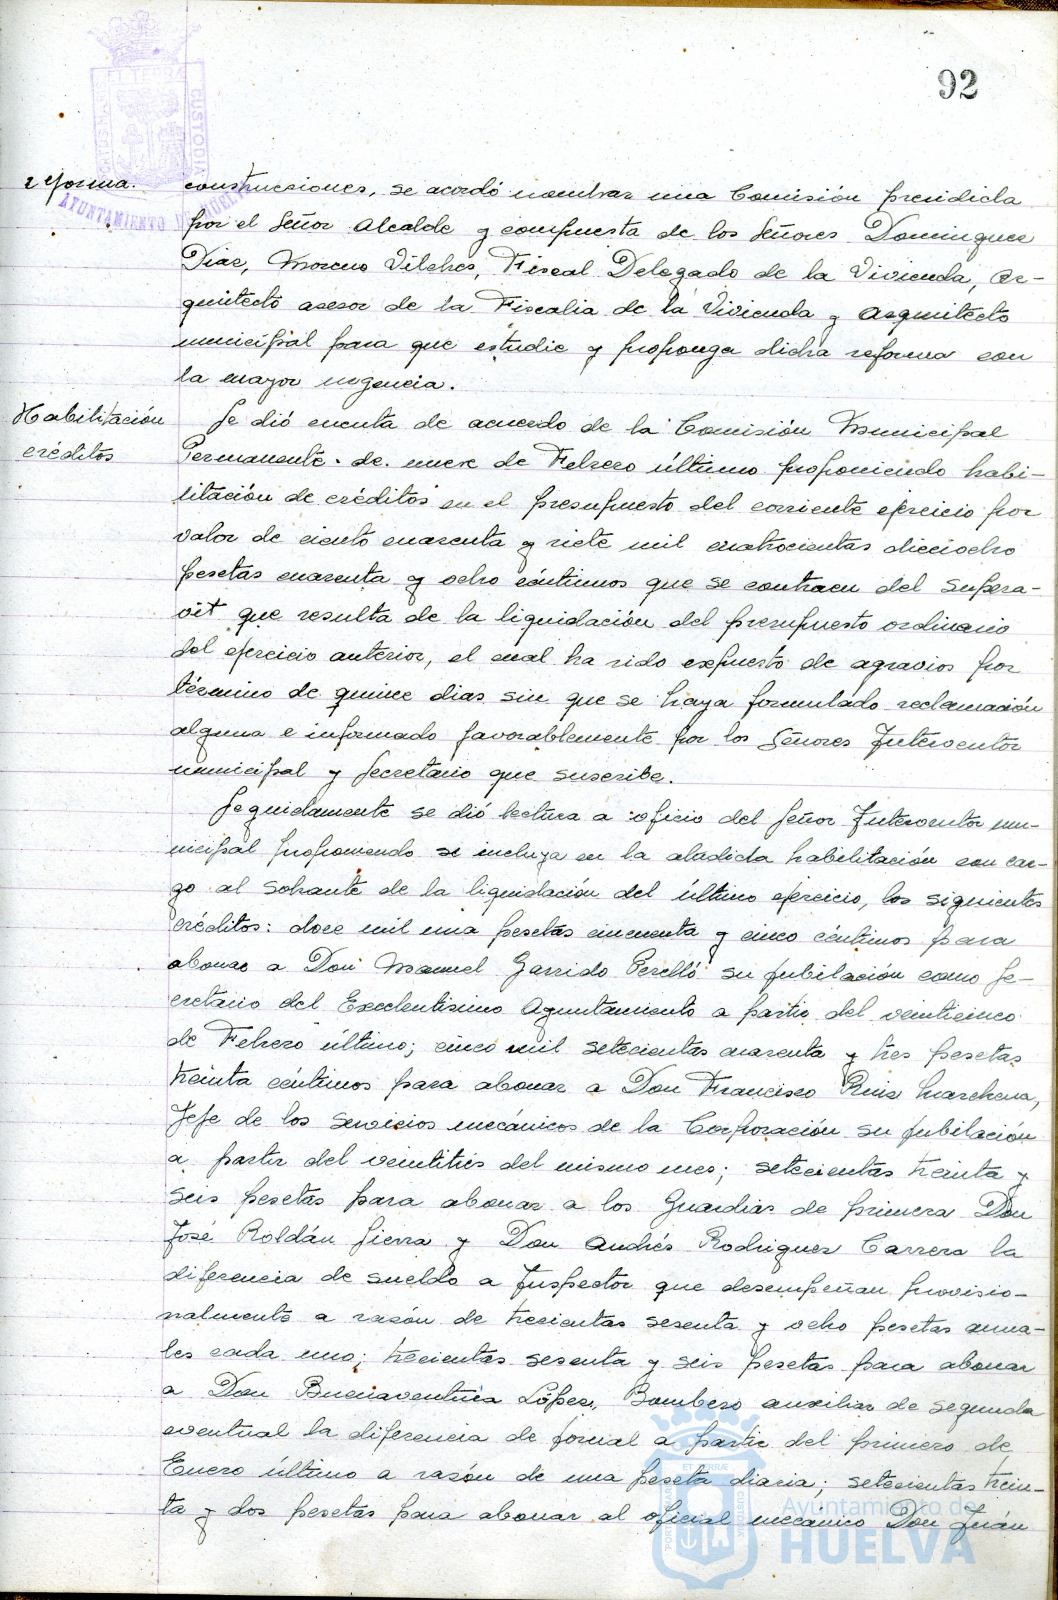 92
reforma.
construcciones, se acordó nombrar una Comisión presidida
por el Señor Alcalde y compuesta de los Señores Dominguez
Diaz, Moreno Vilches, Fiscal Delegado de la Vivienda, Ar-
quitecto asesor de la Fiscalia de la Vivienda y Arquitecto
municipal para que estudie y proponga dicha reforma con
la mayor urgencia.
Habilitación
créditos
Se dió cuenta de acuerdo de la Comisión Municipal
Permanente de nueve de Febrero último proponiendo habi-
litación de créditos en el presupuesto del corriente ejercicio por
valor de ciento cuarenta y siete mil cuatrocientas dieciocho
pesetas cuarenta y ocho céntimos que se contraen del supera-
vit que resulta de la liquidación del presupuesto ordinario
del ejercicio anterior, el cual ha sido expuesto de agravios por
término de quince dias sin que se haya formulado reclamación
alguna e informado favorablemente por los Señores Interventor
municipal y Secretario que suscribe.
Seguidamente se dió lectura a oficio del Señor Interventor mu-
nicipal proponiendo se incluya en la aludida habilitación con car-
go al sobrante de la liquidación del último ejercicio, los siguientes
créditos: doce mil una pesetas cincuenta y cinco céntimos para
abonar a Don Manuel Garrido Perelló su jubilación como Se-
cretario del Excelentisimo Ayuntamiento a partir del veinticinco
de Febrero último; cinco mil setecientas cuarenta y tres pesetas
treinta céntimos para abonar a Don Francisco Ruiz Marchena,
Jefe de los Servicios mecánicos de la Corporación su jubilación
a partir del veintitrés del mismo mes; setecientas treinta y
seis pesetas para abonar a los Guardias de primera Don
José Roldán Sierra y Don Andrés Rodriguez Carrera la
diferencia de sueldo a Inspector que desempeñan provisio-
nalmente a razón de trescientas sesenta y ocho pesetas anua-
les cada uno; trescientas sesenta y seis pesetas para abonar
a Don Buenaventura López, Bombero auxiliar de segunda
eventual la diferencia de jornal a partir del primero de
Enero último a razón de una peseta diaria; setecientas trein-
ta y dos pesetas para abonar al oficial mecánico Don Juán
AYUNTAMIENTO DE HUELVA
ET TERRAE
CUSTODIA
Ayuntamiento de
HUELVA